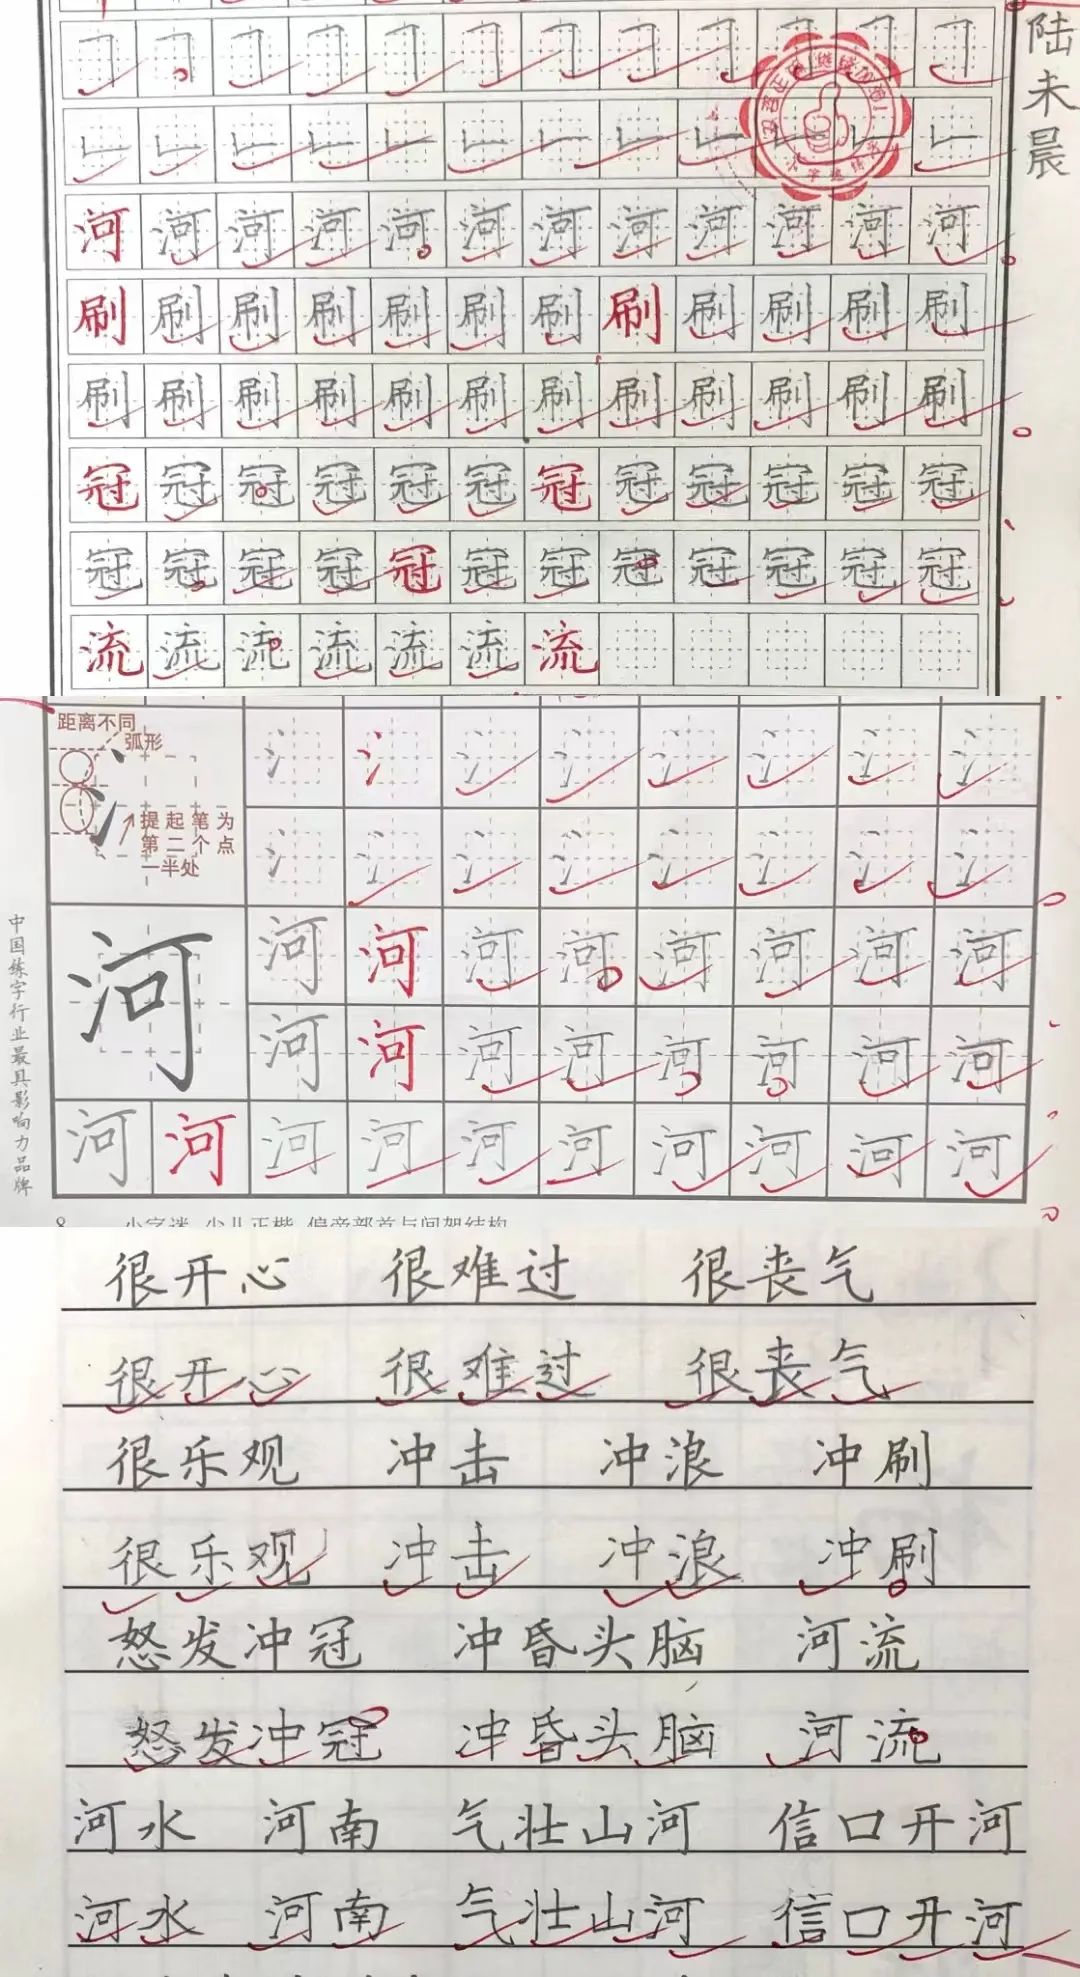 陆未晨
河河河河河河河河河河河河
刷刷刷刷刷刷刷刷刷刷刷刷
刷刷刷刷刷刷刷刷刷刷刷刷
冠冠冠冠冠冠冠冠冠冠冠冠
冠冠冠冠冠冠冠冠冠冠冠冠
流流流流流流流
距离不同
弧形
提起笔为
第二个点
一半处
氵氵氵氵氵氵氵氵
氵氵氵氵氵氵氵氵
中国练字行业最具影响力品牌
河
河河河河河河河河
河河河河河河河河
河河河河河河河河河河
8 小字迷 少儿正楷 偏旁部首与间架结构
很开心 很难过 很丧气
很开心 很难过 很丧气
很乐观 冲击 冲浪 冲刷
很乐观 冲击 冲浪 冲刷
怒发冲冠 冲昏头脑 河流
怒发冲冠 冲昏头脑 河流
河水 河南 气壮山河 信口开河
河水 河南 气壮山河 信口开河